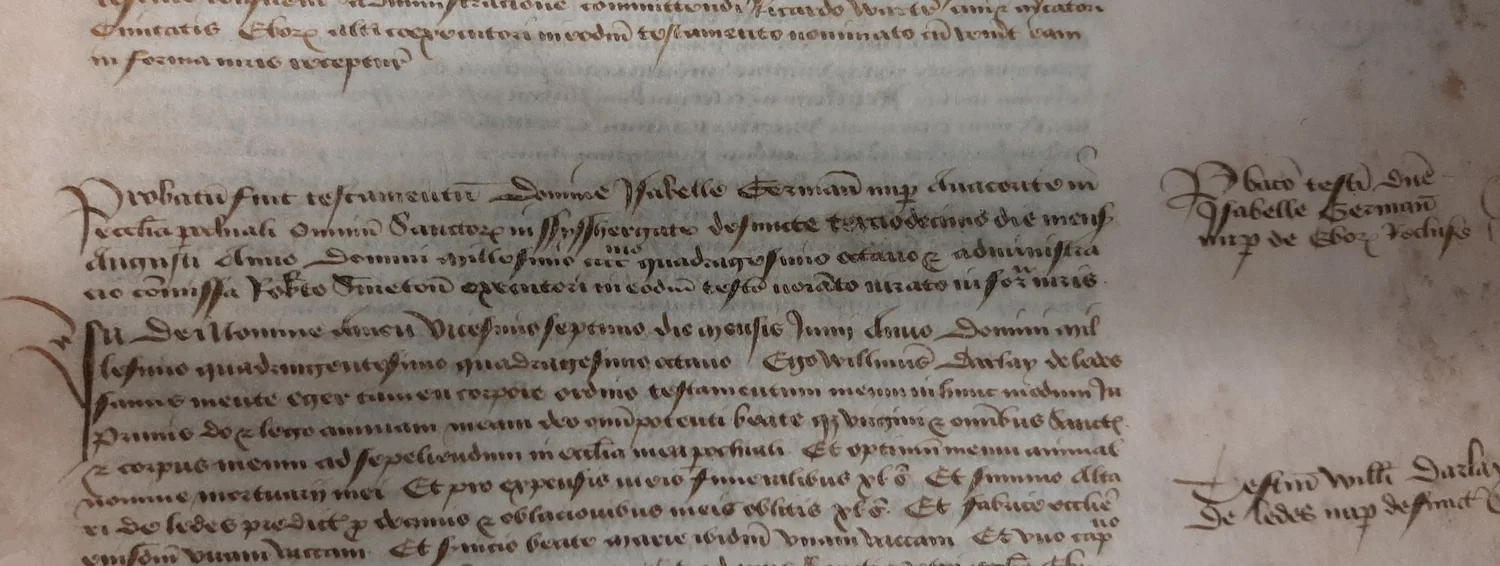 administracione committendi Ricardo Wartr
Ciuitatis Ebor alteri coexecutori in eodm testamento nominato cu venit eam
in forma iuris receptur
Probatu fuit testamentu Domine Isabelle German nup Anacorite in
ecclia pochiali Omniu Sanctor in ffysshergate defuncte terciodecimo die mens
Augusti Anno Domini Millesimo cccc mo quadragesimo octauo & administra
cio comissa Robto Smeton executori in eodm testo noiato iurato in forma iuris
In Dei Nomine Amen Vicesimo septimo die mensis Junij Anno Domini mil
lesimo quadringentesimo quadragesimo octauo Ego Willmus Darlay de ledes
sanus mente eger tamen corpore ordino testamentum meum in hunc modum In
primis do & lego animam meam deo omipotenti beate M virgini & omibus Sanct
& corpus meum ad sepeliendum in ecclia mea pochiali Et optimu meum animal
nomine mortuarij mei Et pro expensis meis funeralibus xl s Et summo Alta
ri de ledes predict p decimis & oblacionibus meis oblitis xl s Et fabrice ecclie
eiusdm vnam vaccam Et seruicio beate marie ibidm vnam vaccam Et vno cap no
Pbaco testi Dne
Isabelle German
nup de Ebor Recluse
Testm Willi Darlay
De ledes nup defunct